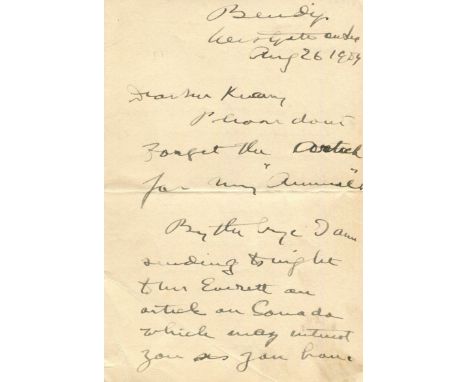 Bendip
Westgate on Sea
Aug 26 1919
Dear Mr Keary
Please dont
forget the article
for my "Annual"
By the bye I am
sending to night
to Mr Everett an
article on Canada
which may interest
you as you have